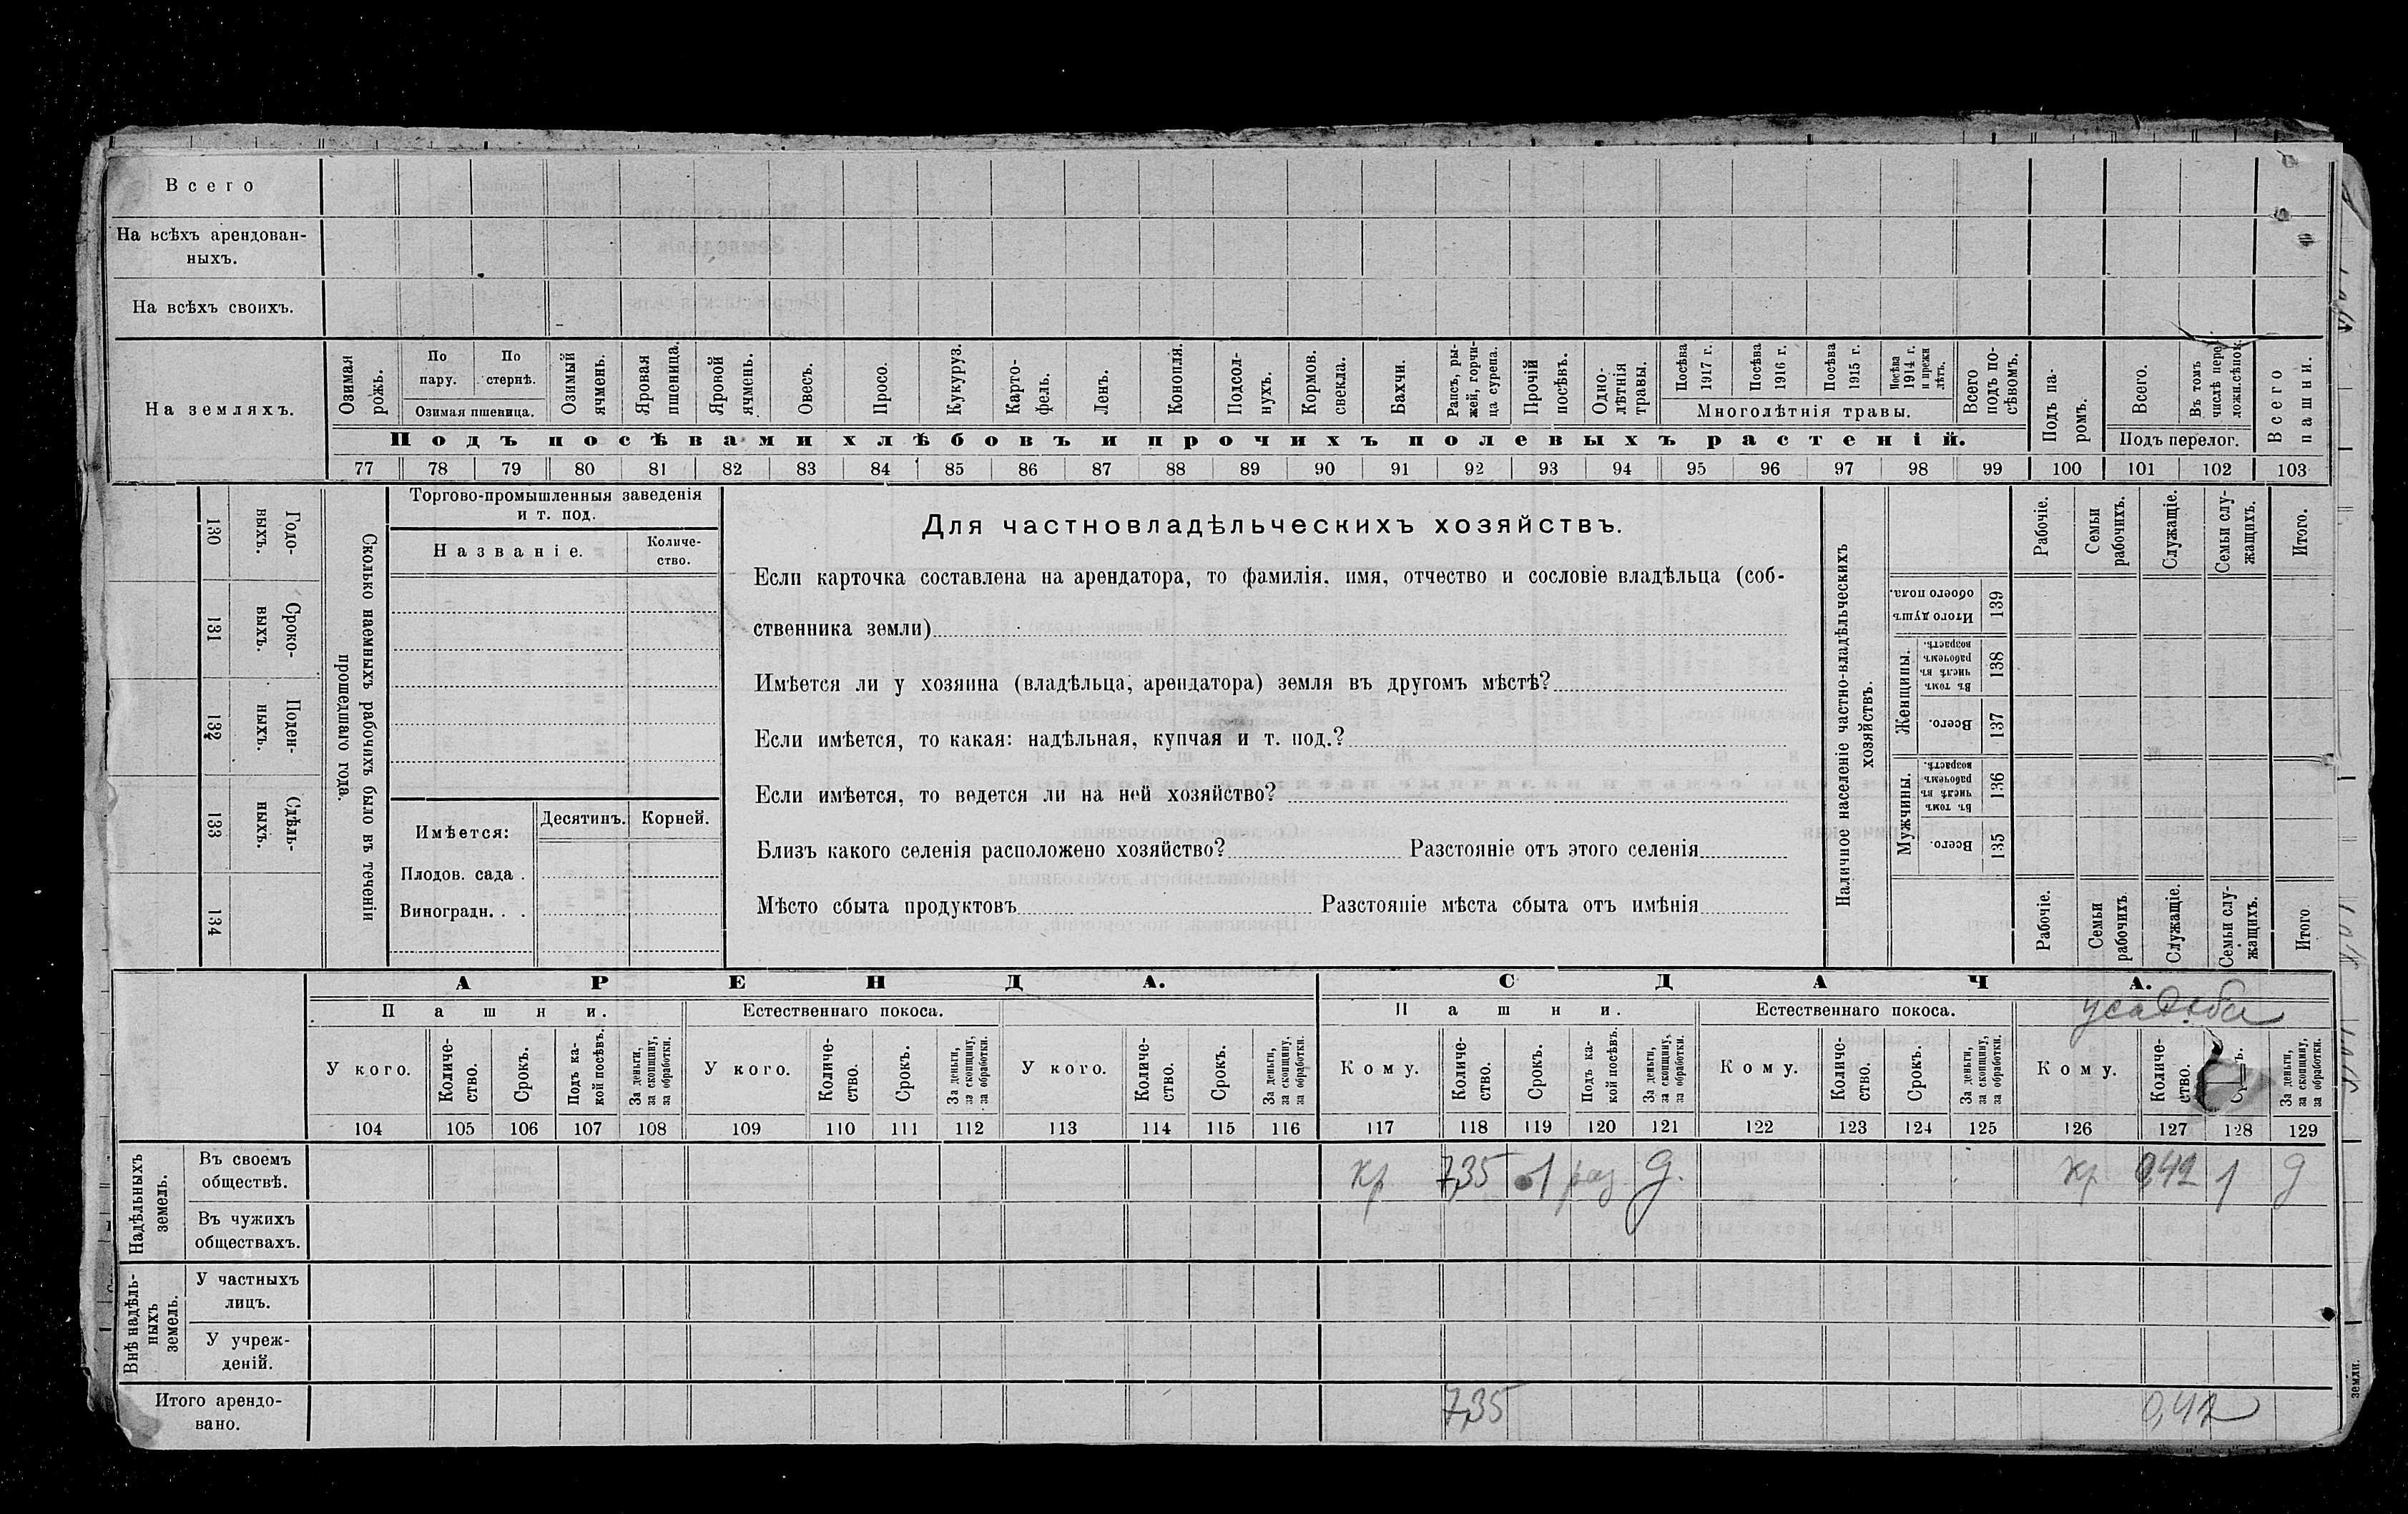 Всего
На всѣхъ арендован-
ныхъ.
На всѣхъ своихъ.
На земляхъ.
Озимая рожь.
По пару.
По стернѣ.
Озимая пшеница.
Озимый ячмень.
Яровая пшеница.
Яровой ячмень.
Овесъ.
Просо.
Кукуруз.
Карто-
фель.
Ленъ.
Конопля.
Подсол-
нухъ.
Кормов. свекла.
Бахчи.
Рапсъ, ры-
жей, горчи-
ца сурепа.
Прочій посѣвъ.
Одно-
лѣтнія травы.
Посѣва 1917 г.
Посѣва 1916 г.
Посѣва 1915 г.
Посѣва 1914 г. и прежн лѣтъ.
Многолѣтнія травы.
Всего подъ по-
сѣвомъ.
Подъ посѣвами хлѣбовъ и прочихъ полевыхъ растеній.
Подъ па-
ромъ.
Всего.
Въ томъ числѣ пере
ложн.сѣнок.
Подъ перелог.
Всего пашни.
77 78 79 80 81 82 83 84 85 86 87 88 89 90 91 92 93 94 95 96 97 98 99 100 101 102 103
Годо-
выхъ.
130
Сроко-
выхъ.
131
Поден-
ныхъ.
132
Сдѣль-
ныхъ.
133
134
Сколько наемныхъ рабочихъ было въ теченіи
прошедшаго года.
Торгово-промышленныя заведенія
и т. под.
Названіе.
Количе-
ство.
Имѣется:
Десятинъ.
Корней.
Плодов. сада .
Виноградн. . .
Для частновладѣльческихъ хозяйствъ.
Если карточка составлена на арендатора, то фамилія, имя, отчество и сословіе владѣльца (соб-
ственника земли)
Имѣется ли у хозяина (владѣльца, арендатора) земля въ другомъ мѣстѣ?
Если имѣется, то какая: надѣльная, купчая и т. под.?
Если имѣется, то ведется ли на ней хозяйство?
Близъ какого селенія расположено хозяйство? Разстояніе отъ этого селенія
Мѣсто сбыта продуктовъ Разстояніе мѣста сбыта отъ имѣнія
Наличное населеніе частно-владѣльческихъ
хозяйствъ.
Рабочіе.
Семьи рабочихъ.
Служащіе.
Семьи слу-
жащихъ.
Итого.
Итого душъ обоего пола.
139
Женщины.
Въ томъ числѣ въ рабочемъ возрастѣ.
138
Всего.
137
Мужчины.
Въ томъ числѣ въ рабочемъ возрастѣ.
136
Всего.
135
Рабочіе.
Семьи рабочихъ
Служащіе.
Семьи слу-
жащихъ.
Итого
АРЕНДА.
СДАЧА.
Пашни.
Естественнаго покоса.
Пашни.
Естественнаго покоса.
усадьба
У кого.
Количе-
ство.
Срокъ.
Подъ ка-
кой посѣвъ.
За деньги,
за скопщину,
за обработки.
У кого.
Количе-
ство.
Срокъ.
За деньги,
за скопщину,
за обработки.
У кого.
Количе-
ство.
Срокъ.
За деньги,
за скопщину,
за обработки.
Кому.
Количе-
ство.
Срокъ.
Подъ ка-
кой посѣвъ.
За деньги,
за скопщину,
за обработки.
Кому.
Количе-
ство.
Срокъ.
За деньги,
за скопщину,
за обработки.
Кому.
Количе-
ство.
За деньги,
за скопщину,
за обработки.
104 105 106 107 108 109 110 111 112 113 114 115 116 117 118 119 120 121 122 123 124 125 126 127 128 129
Надѣльныхъ земель.
Въ своемъ
обществѣ.
кр 7,35 1 раз д. кр 0,42 1 д
Въ чужихъ
обществахъ.
Внѣ надѣль-
ныхъ земель.
У частныхъ
лицъ.
У учреж-
деній.
Итого арендо-
вано.
7,35 0,42
земли.